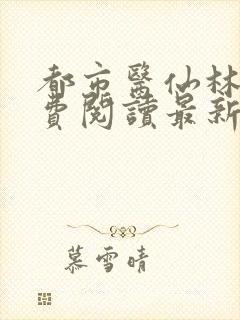 都市醫仙林
費閱讀最新
慕雪晴